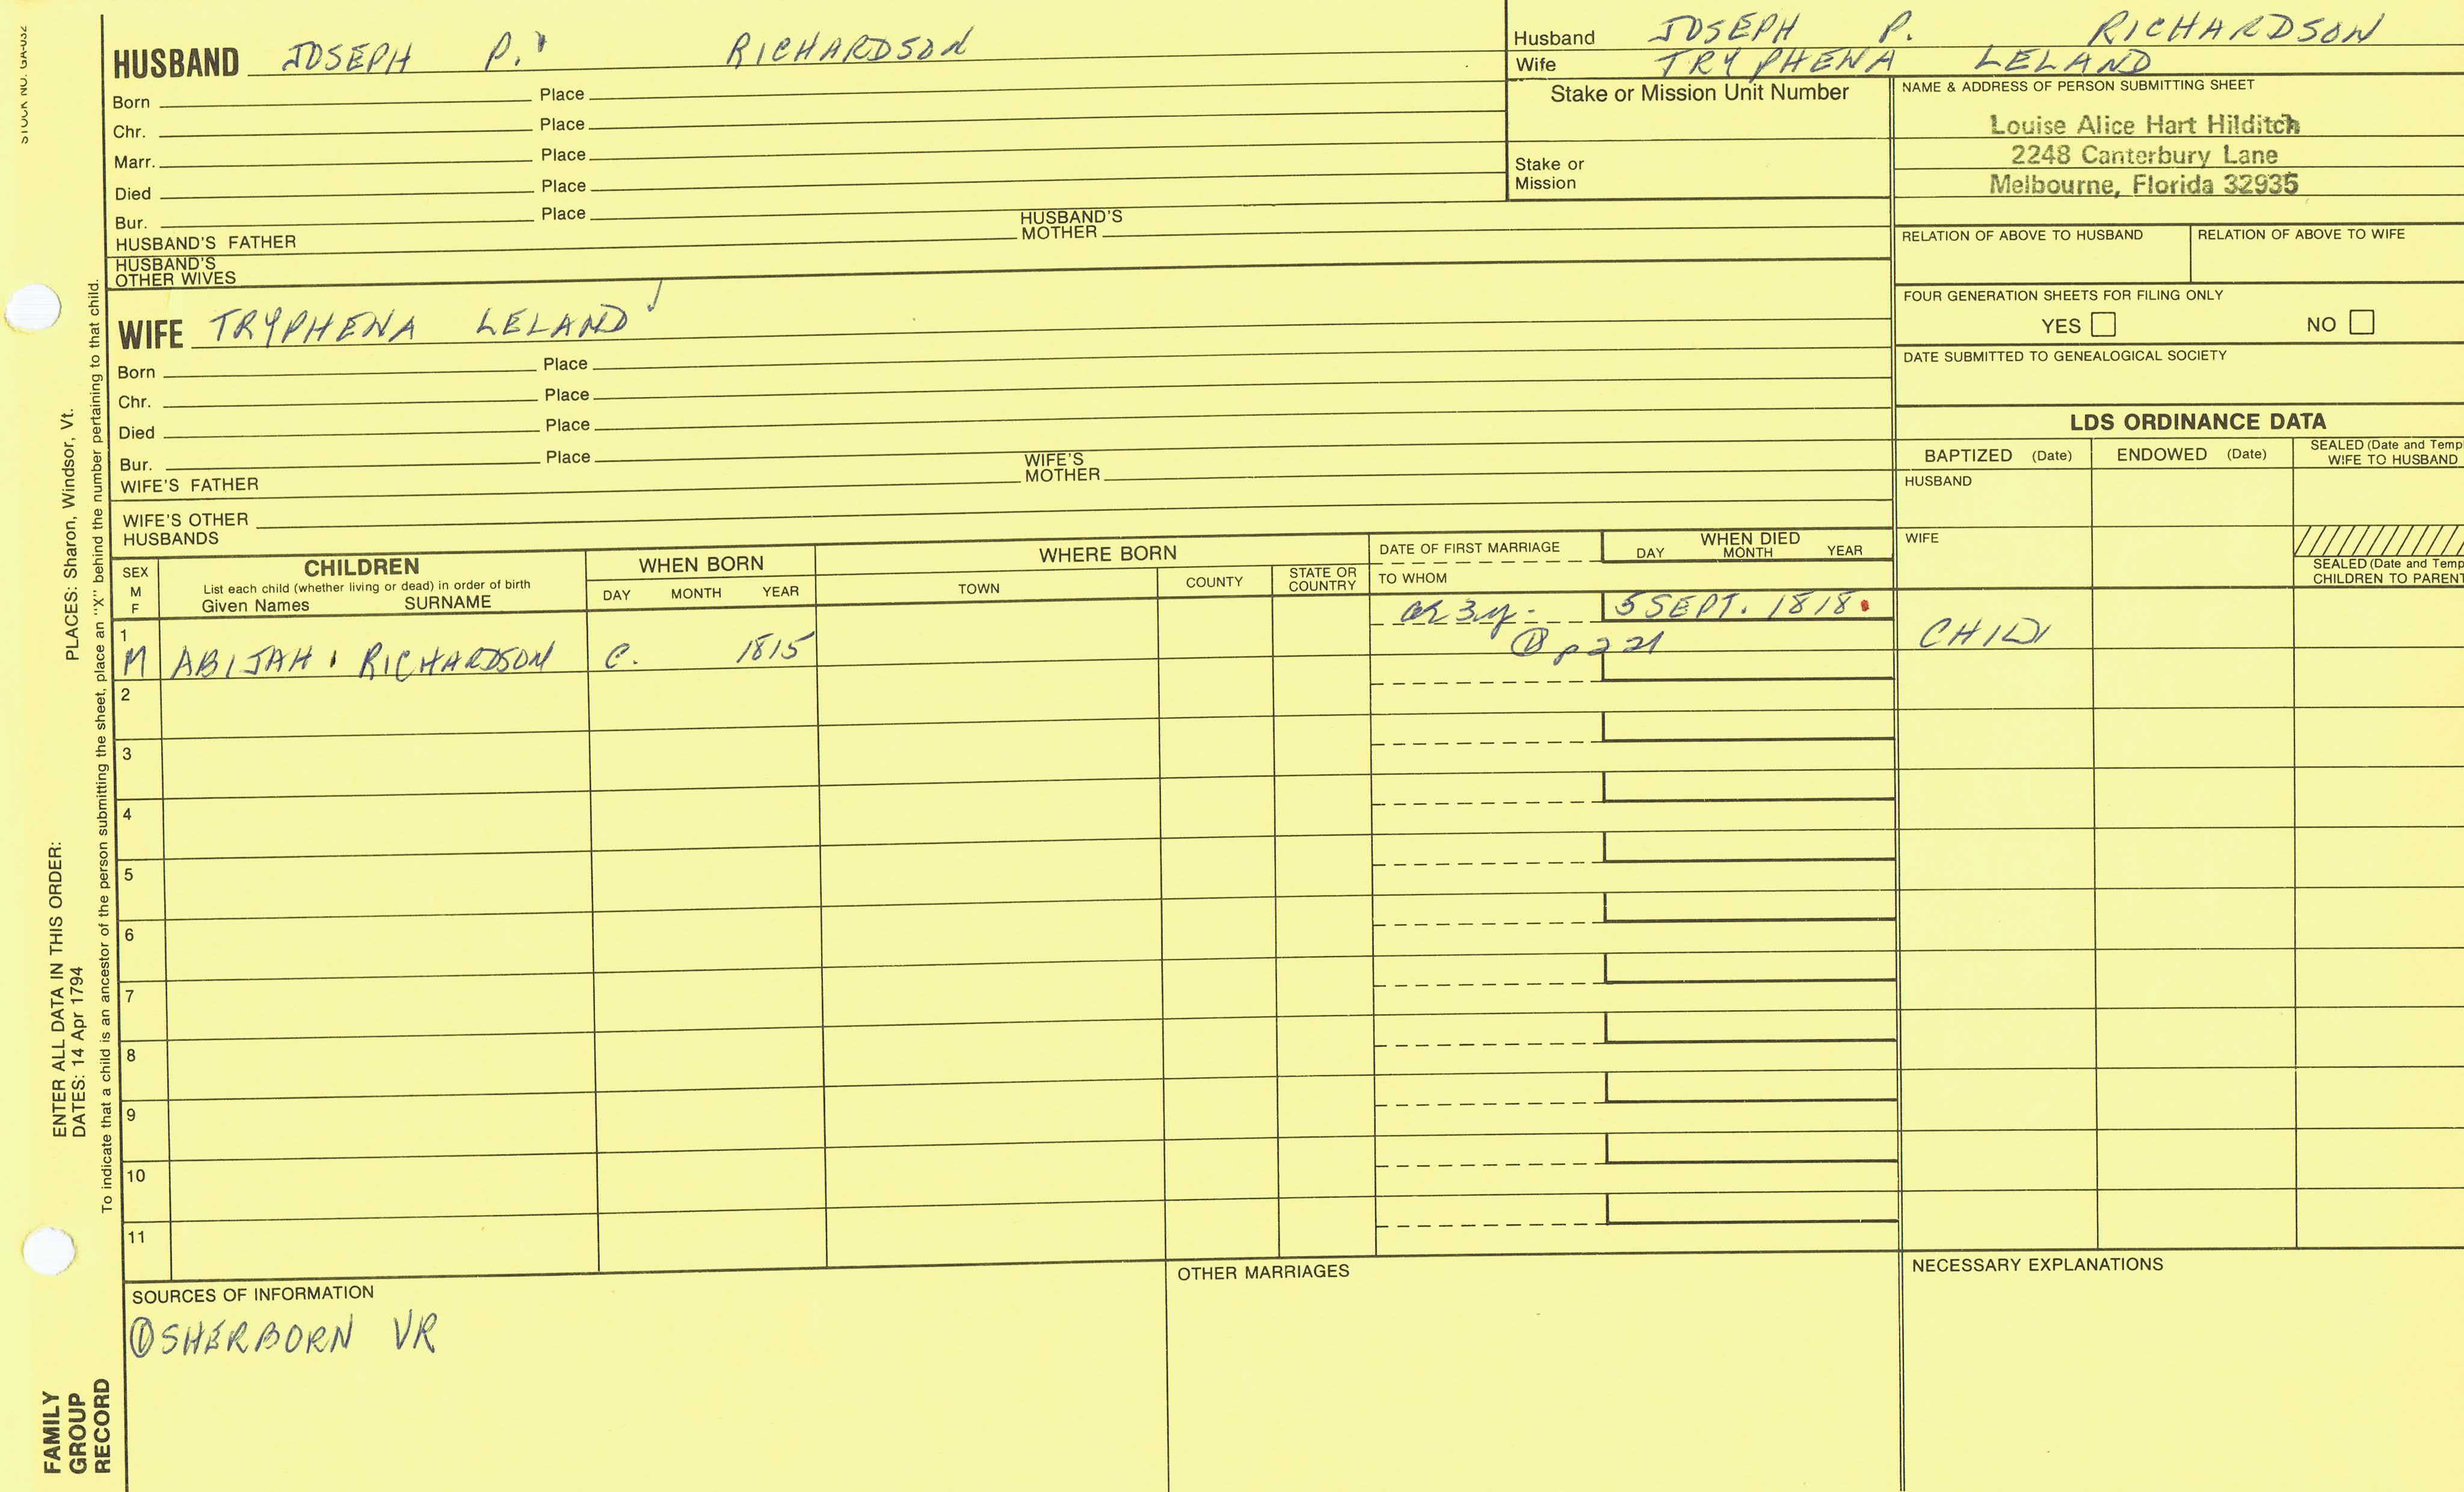 STOCK NO. GA-032
HUSBAND JOSEPH P. RICHARDSON
Born Place
Chr. Place
Marr. Place
Died Place
Bur. Place
HUSBAND'S FATHER HUSBAND'S MOTHER
HUSBAND'S OTHER WIVES
WIFE TRYPHENA LELAND
Born Place
Chr. Place
Died Place
Bur. Place
WIFE'S FATHER WIFE'S MOTHER
WIFE'S OTHER HUSBANDS
Husband JOSEPH P. RICHARDSON
Wife TRYPHENA LELAND
Stake or Mission Unit Number
Stake or Mission
NAME & ADDRESS OF PERSON SUBMITTING SHEET
Louise Alice Hart Hilditch
2248 Canterbury Lane
Melbourne, Florida 32935
RELATION OF ABOVE TO HUSBAND RELATION OF ABOVE TO WIFE
FOUR GENERATION SHEETS FOR FILING ONLY
YES NO
DATE SUBMITTED TO GENEALOGICAL SOCIETY
LDS ORDINANCE DATA
BAPTIZED (Date) ENDOWED (Date) SEALED (Date and Templ
WIFE TO HUSBAND
HUSBAND
WIFE
SEALED (Date and Templ
CHILDREN TO PARENT
SEX M F
CHILDREN
List each child (whether living or dead) in order of birth
Given Names SURNAME
WHEN BORN
DAY MONTH YEAR
WHERE BORN
TOWN COUNTY STATE OR COUNTRY
DATE OF FIRST MARRIAGE
TO WHOM
WHEN DIED
DAY MONTH YEAR
1 M ABIJAH RICHARDSON C. 1815 3y. 5 SEPT. 1818 CHILD
① p 221
2
3
4
5
6
7
8
9
10
11
SOURCES OF INFORMATION
① SHERBORN VR
OTHER MARRIAGES
NECESSARY EXPLANATIONS
PLACES: Sharon, Windsor, Vt.
ENTER ALL DATA IN THIS ORDER:
DATES: 14 Apr 1794
To indicate that a child is an ancestor of the person submitting the sheet, place an "X" behind the number pertaining to that child.
FAMILY
GROUP
RECORD